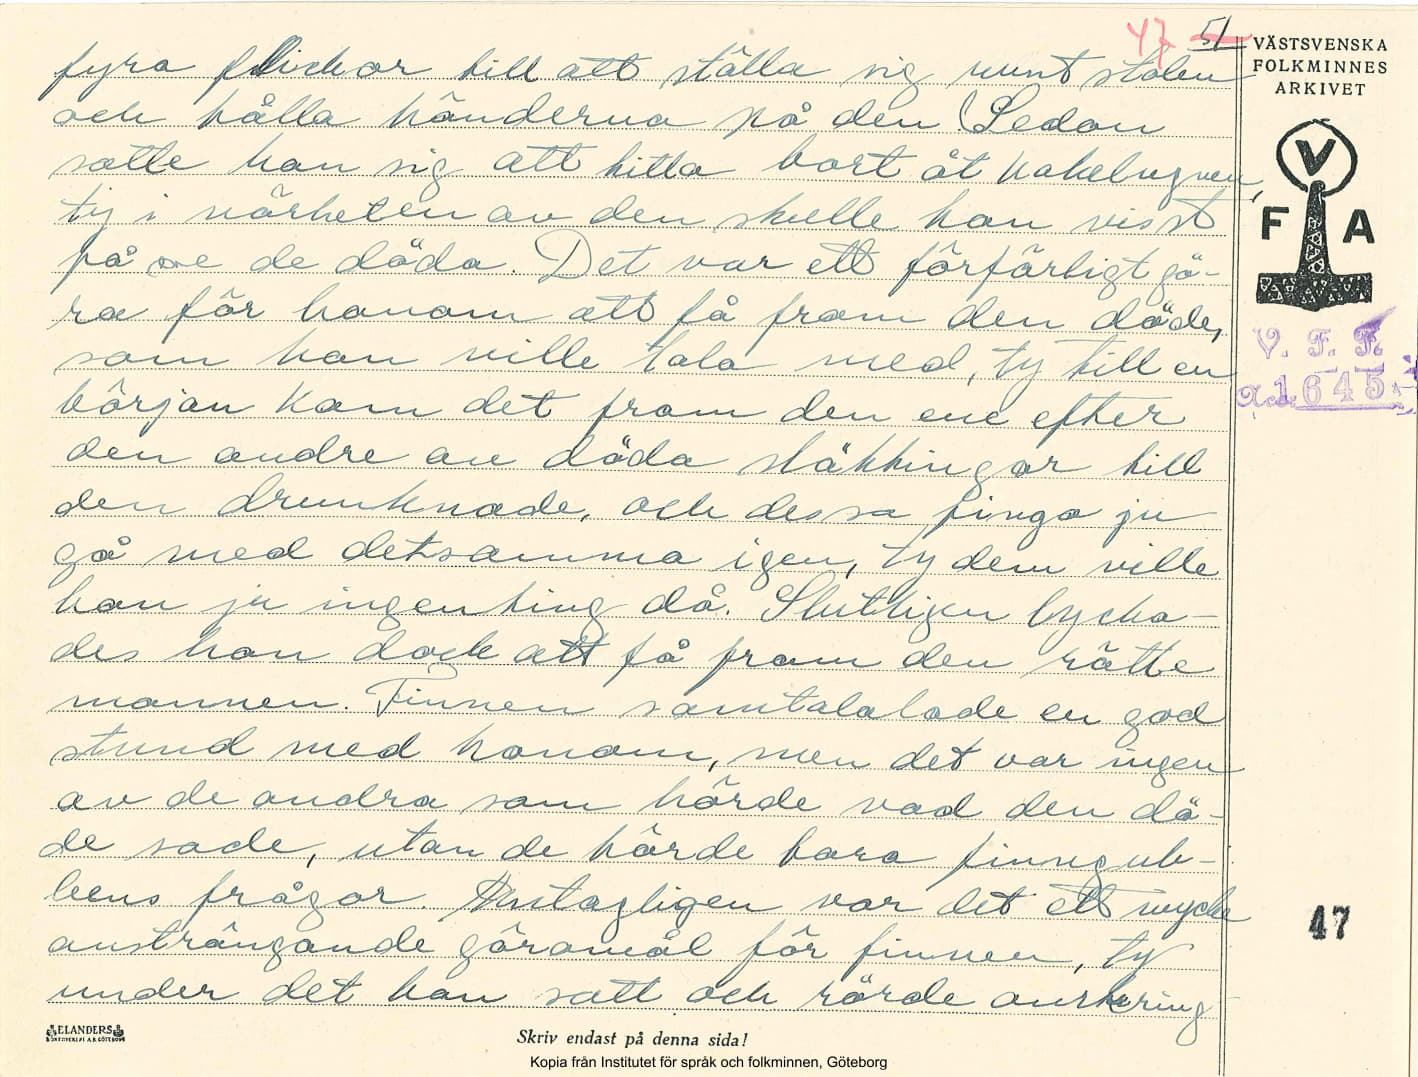 47 51
VÄSTSVENSKA
FOLKMINNES
ARKIVET
V
F A
V. F. F.
Acc. 1645
fyra flickor till att ställa sig runt stolen
och hålla händerna på den (Sedan
satte han sig att titta bort åt kakelugnen,
ty i närheten av den skulle han visst
på se de döda. Det var ett förfärligt gö-
ra för honom att få fram den döde,
som han ville tala med, ty till en
början kom det fram den ene efter
den andre av döda släktingar till
den drunknade, och dessa fingo ju
gå med detsamma igen, ty dem ville
han ju ingenting då. Slutligen lycka-
des han dock att få fram den rätte
mannen. Finnen samtalalade en god
stund med honom, men det var ingen
av de andra som hörde vad den dö-
de sade, utan de hörde bara finngub-
bens frågor. Antagligen var det ett mycke
ansträngande göromål för finnen, ty
under det han satt och rörde omkring
47
ELANDERS
BOKTRYCKERI A.B. GÖTEBORG
Skriv endast på denna sida!
Kopia från Institutet för språk och folkminnen, Göteborg